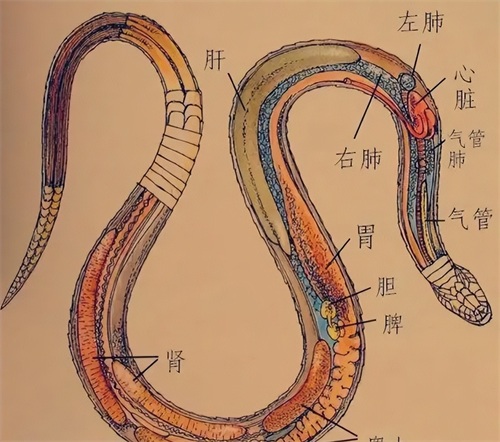 左肺
肝
心
脏
右肺
气管
肺
气管
胃
胆
脾
肾